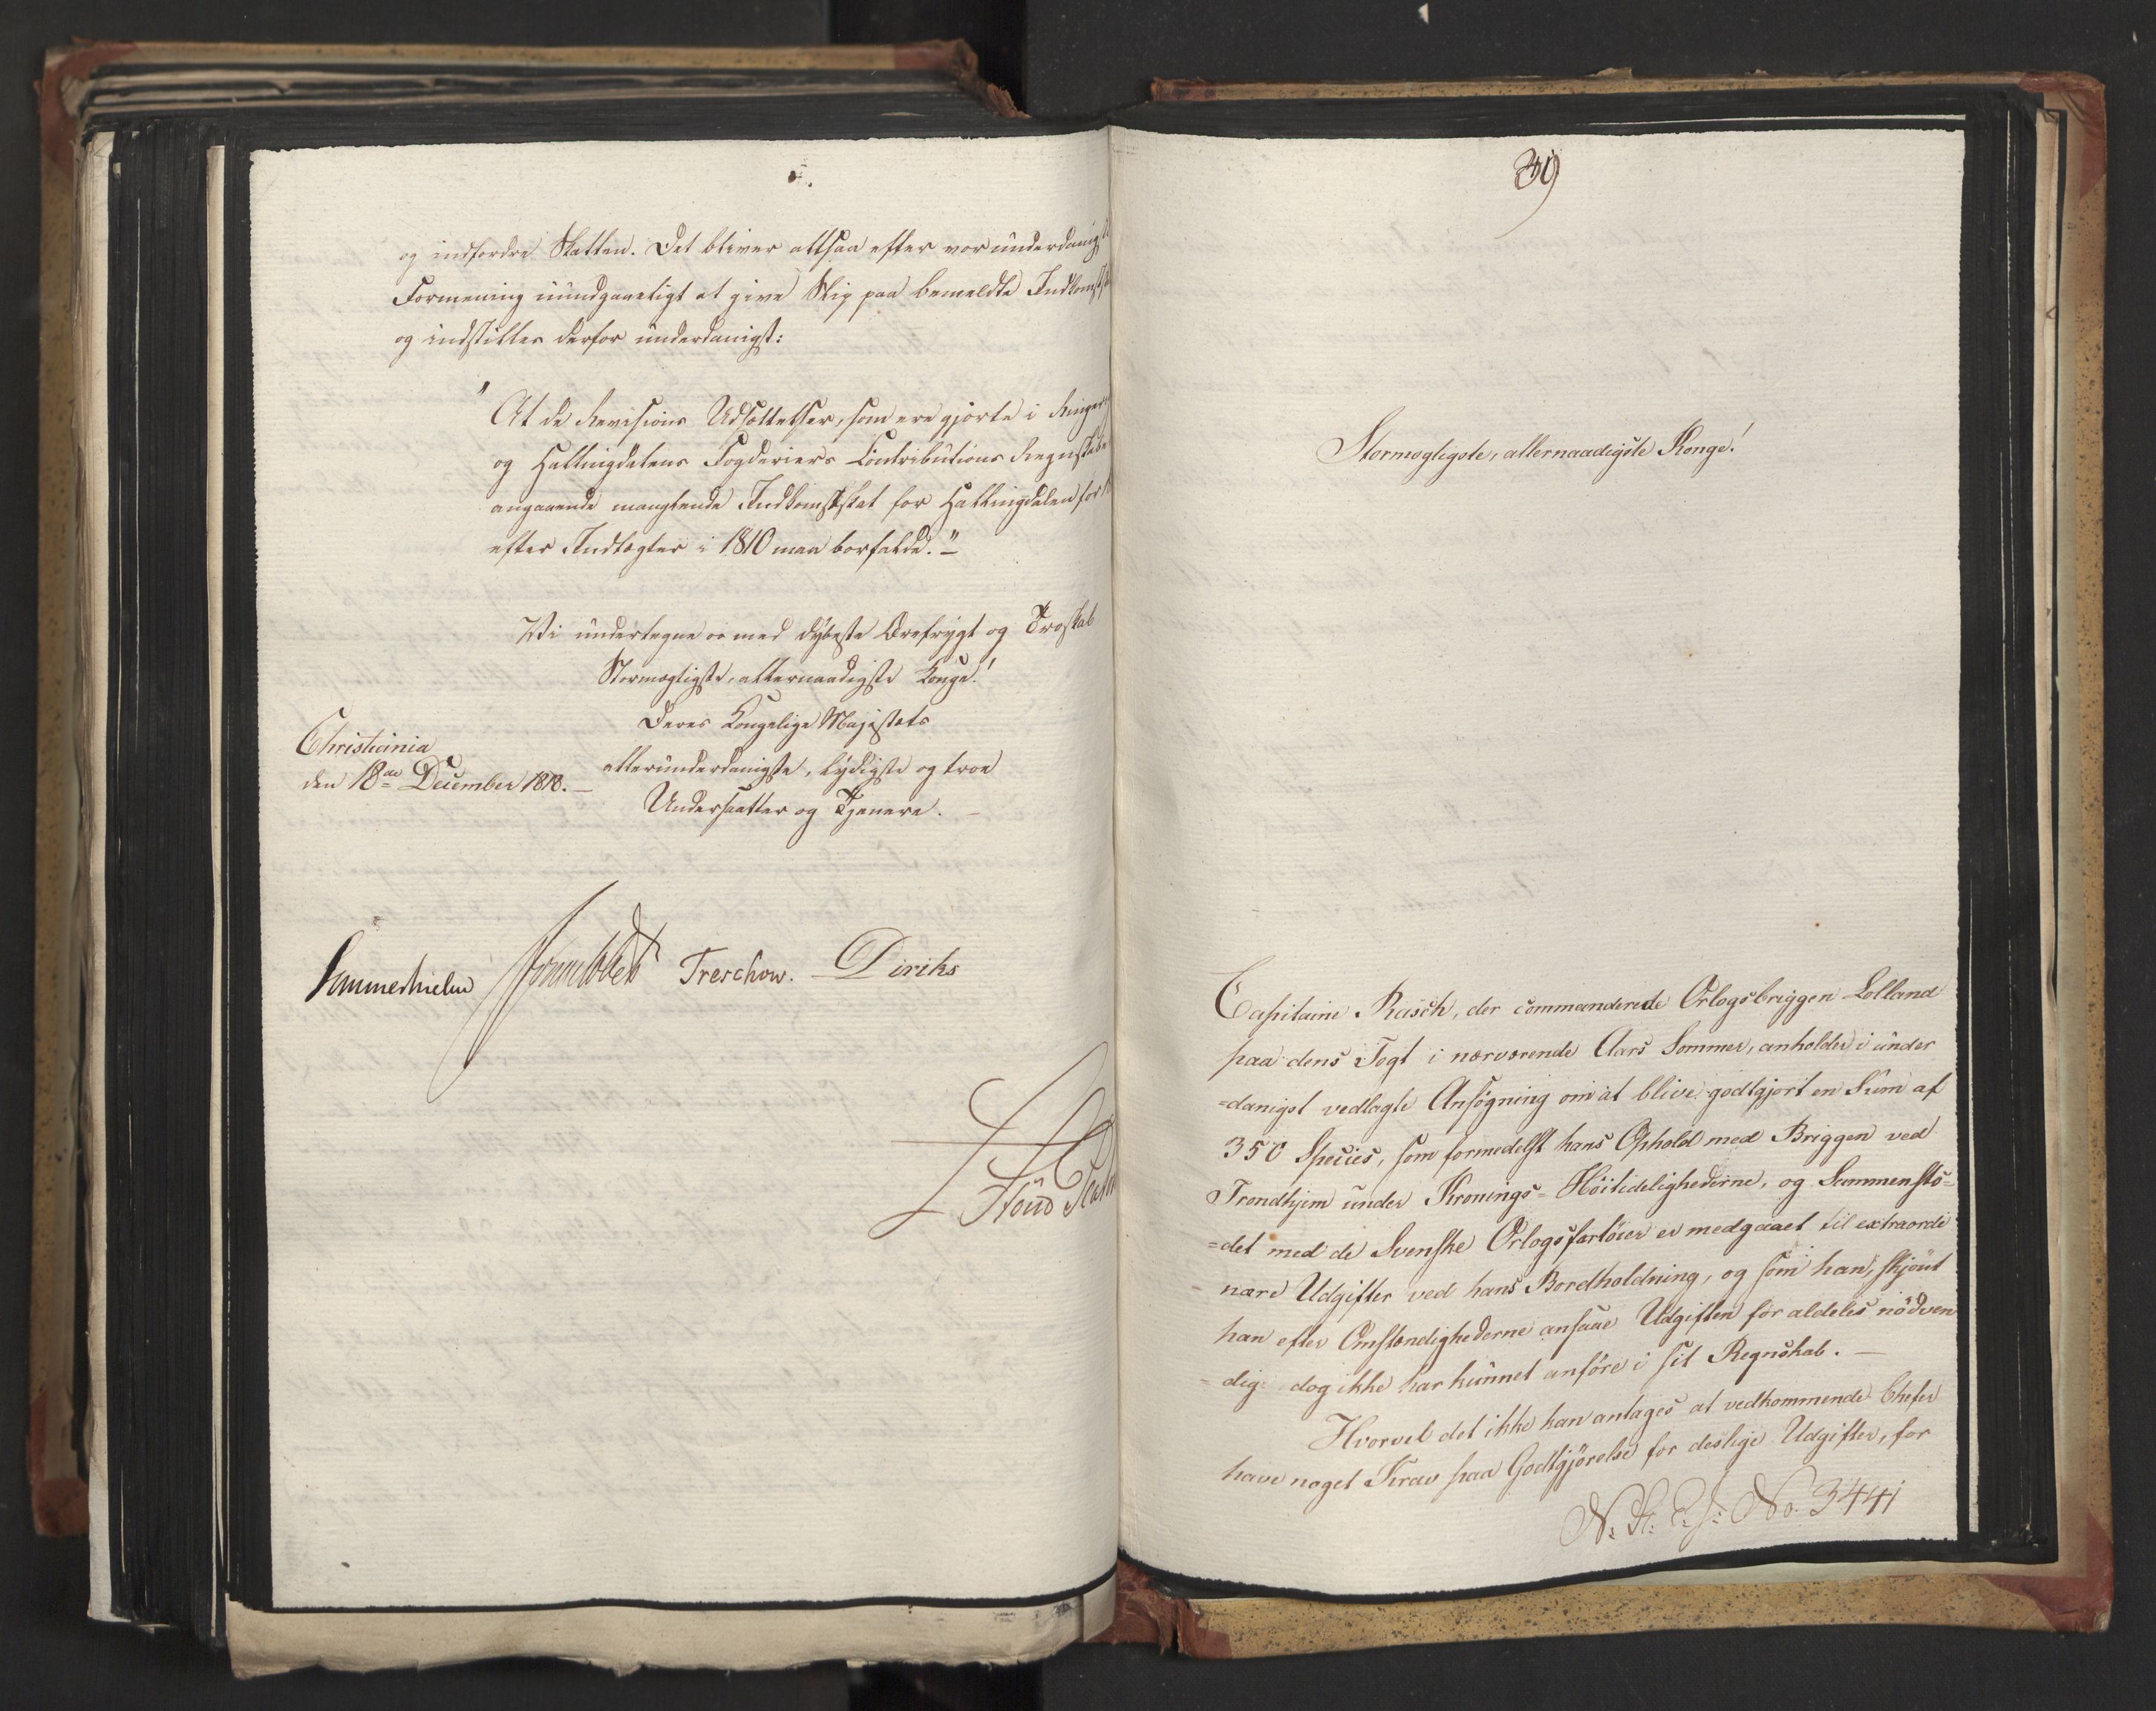 og indfordre Skatten. Det bliver altsaa efter vor underdanigste
Formening uundgaaeligt at give Slip paa bemeldte
og indstilles derfor underdanigst:
"At de Revisions Udsættelser, som ere gjorte i
og Hallingdalens Fogderiers Contributions Regnskaber
angaaende manglende Indkomstskat for Hallingdalen for
efter Indtægter i 1810 maa bortfalde."
Vi undertegne os med dybeste Ærefrygt og Troskab
Stormægtigste, allernaadigste Konge!
Deres Kongelige Majestæts
Christiania
den 18de December 1818.
allerunderdanigste, lydigste og troe
Undersaatter og Tjenere.
Sommerhielm Treschow. Diriks
39
Stormægtigste, allernaadigste Konge!
Capitaine Rasch, der commanderede Orlogsbriggen Lolland
paa dens Togt i nærværende Aars Sommer, anholder i under
=danigst vedlagte Ansøgning om at blive godtgjort en Sum af
350 Species, som formedelst hans Ophold med Briggen ved
Trondhjem under Kronings-Höitidelighederne, og Sammenstö-
=det med de Svenske Orlogsfartöier er medgaaet til extraordi
nære Udgifter ved hans Bordholdning, og som han, skjönt
han efter Omstændighederne ansaae Udgiften for aldeles nödven
=dig dog ikke har kunnet anföre i sit Regnskab.
Hvorvel det ikke kan antages at vedkommende Chefer
have noget Krav paa Godtgjörelse for deslige Udgifter, for
No. 3441